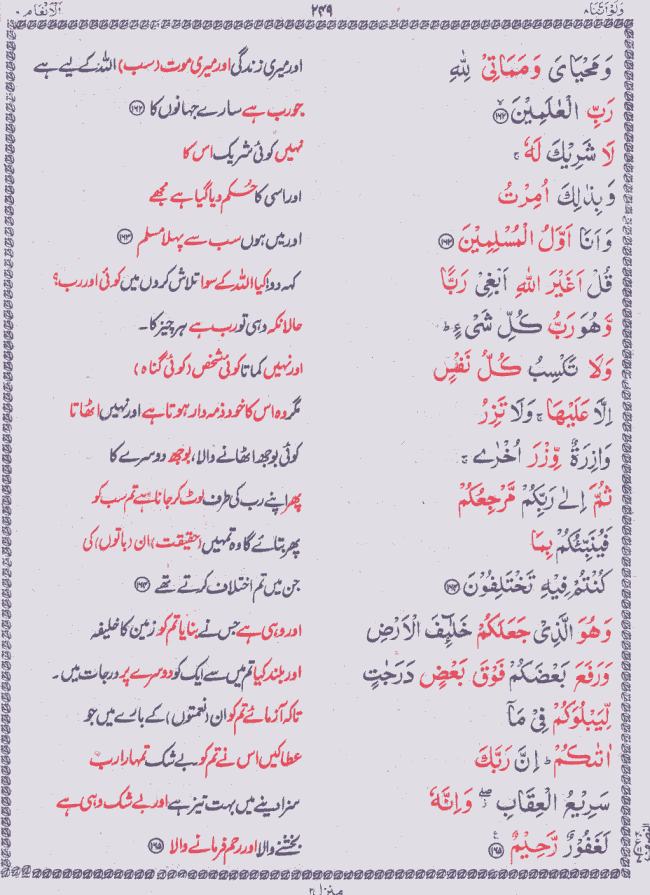 وَلَوْ اَنَّنَا ٨ ٢٤٩ اَلْاَنْعَام ٦
وَمَحْيَايَ وَمَمَاتِيْ لِلّٰهِ اور میری زندگی اور میری موت (سب) اللہ کے لیے ہے
رَبِّ الْعٰلَمِيْنَ ﴿١٦٢﴾ جو رب ہے سارے جہانوں کا ﴿١٦٢﴾
لَا شَرِيْكَ لَهٗ ۚ نہیں کوئی شریک اس کا
وَبِذٰلِكَ اُمِرْتُ اور اسی کا حکم دیا گیا ہے مجھے
وَاَنَا اَوَّلُ الْمُسْلِمِيْنَ ﴿١٦٣﴾ اور میں ہوں سب سے پہلا مسلم ﴿١٦٣﴾
قُلْ اَغَيْرَ اللّٰهِ اَبْغِيْ رَبًّا کہہ دو! کیا اللہ کے سوا تلاش کروں میں کوئی اور رب؟
وَّهُوَ رَبُّ كُلِّ شَيْءٍ ؕ حالانکہ وہی تو رب ہے ہر چیز کا۔
وَلَا تَكْسِبُ كُلُّ نَفْسٍ اور نہیں کماتا کوئی شخص (کوئی گناہ)
اِلَّا عَلَيْهَا ۚ وَلَا تَزِرُ مگر وہ اس کا خود ذمہ دار ہوتا ہے اور نہیں اٹھاتا
وَازِرَةٌ وِّزْرَ اُخْرٰى ۚ کوئی بوجھ اٹھانے والا، بوجھ دوسرے کا
ثُمَّ اِلٰى رَبِّكُمْ مَّرْجِعُكُمْ پھر اپنے رب کی طرف لوٹ کر جانا ہے تم سب کو
فَيُنَبِّئُكُمْ بِمَا پھر بتائے گا وہ تمہیں (حقیقت) ان (باتوں) کی
كُنْتُمْ فِيْهِ تَخْتَلِفُوْنَ ﴿١٦٤﴾ جن میں تم اختلاف کرتے تھے ﴿١٦٤﴾
وَهُوَ الَّذِيْ جَعَلَكُمْ خَلٰٓئِفَ الْاَرْضِ اور وہی ہے جس نے بنایا تم کو زمین کا خلیفہ
وَرَفَعَ بَعْضَكُمْ فَوْقَ بَعْضٍ دَرَجٰتٍ اور بلند کیا تم میں سے ایک کو دوسرے پر درجات میں۔
لِّيَبْلُوَكُمْ فِيْ مَآ تاکہ آزمائے تم کو ان (نعمتوں) کے بارے میں جو
اٰتٰىكُمْ ؕ اِنَّ رَبَّكَ عطا کیں اس نے تم کو بے شک تمہارا رب
سَرِيْعُ الْعِقَابِ ۖ وَاِنَّهٗ سزا دینے میں بہت تیز ہے اور بے شک وہی ہے
لَغَفُوْرٌ رَّحِيْمٌ ﴿١٦٥﴾ بخشنے والا اور رحم فرمانے والا ﴿١٦٥﴾
منزل ٢